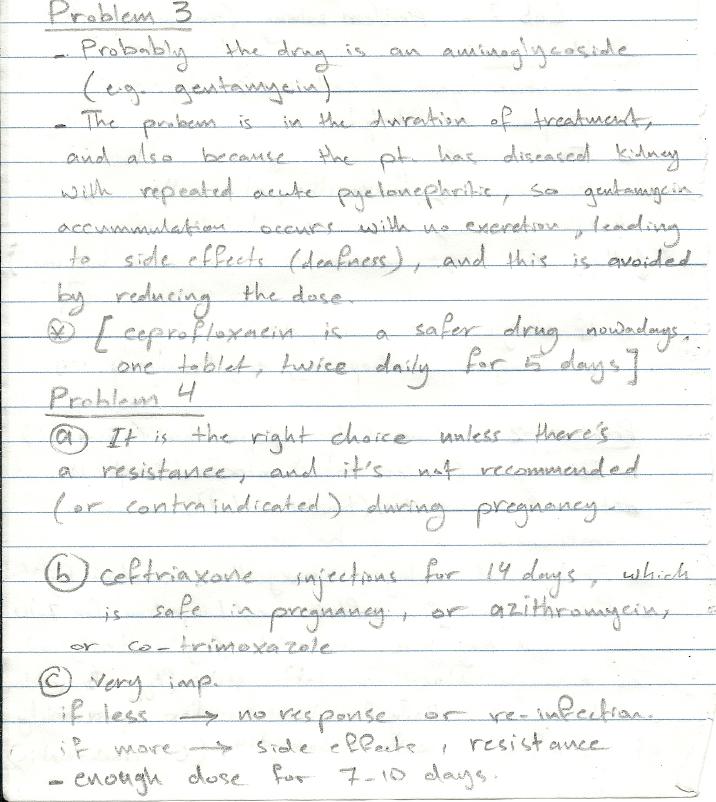 Problem 3
- Probably the drug is an aminoglycoside
(e.g. gentamycin)
- The probem is in the duration of treatment,
and also because the pt. has diseased kidney
with repeated acute pyelonephritic, so gentamycin
accummulation occurs with no excretion, leading
to side effects (deafness), and this is avoided
by reducing the dose.
* [ ceprofloxacin is a safer drug nowadays.
one tablet, twice daily for 5 days ]
Problem 4
(a) It is the right choice unless there's
a resistance, and it's not recommended
(or contraindicated) during pregnancy.
(b) ceftriaxone injections for 14 days, which
is safe in pregnancy, or azithromycin,
or co-trimoxazole
(c) very imp.
if less → no response or re-infection.
if more → side effects, resistance
- enough dose for 7-10 days.